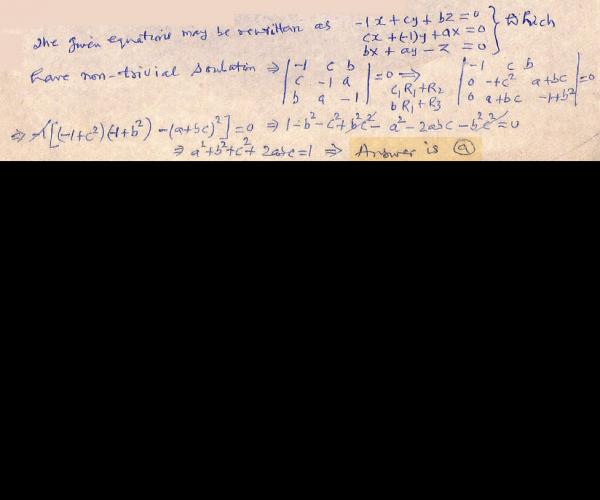 The given equations may be rewritten as -1x + cy + bz = 0 } Which
cx + (-1)y + ax = 0
bx + ay - z = 0
have non-trivial soulation ⇒ |-1 c b| = 0 ⇒ |-1 c b| = 0
|c -1 a| C1R1+R2 |0 -1+c² a+bc|
|b a -1| bR1+R3 |0 a+bc -1+b²|
⇒ -1[(-1+c²)(-1+b²) - (a+bc)²] = 0 ⇒ 1-b²-c²+b²c²-a²-2abc-b²c² = 0
⇒ a²+b²+c²+2abc=1 ⇒ Answer is (a)